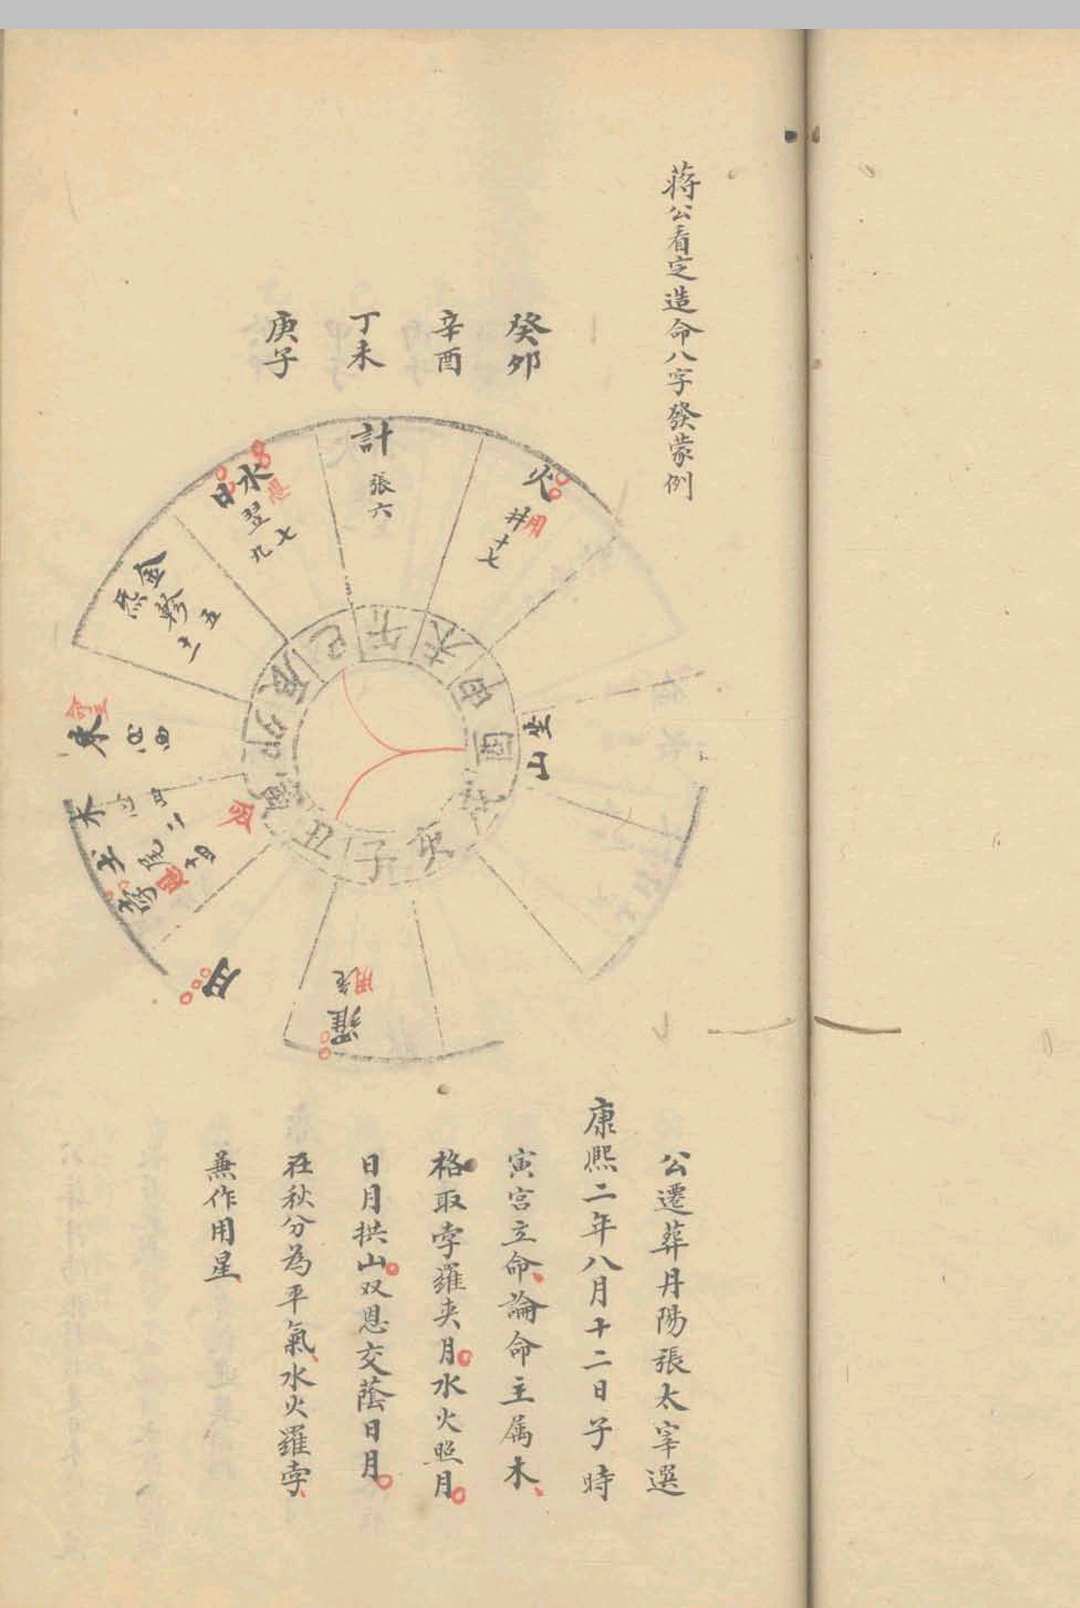 蒋公看定造命八字發蒙例
癸卯
辛酉
丁未
庚子
火
井十七
用
計
張六
水日
恩
翌七
九
金
軫五
東
木
用
月
羅
用
坐山
巳
午
未
申
酉
亥
子
丑
寅
卯
辰
公遷葬丹陽張太宰選
康熙二年八月十二日子時
寅宮立命論命主属木
格取孛羅夾月水火照月
日月拱山双恩交蔭日月
在秋分為平氣水火羅孛
兼作用星